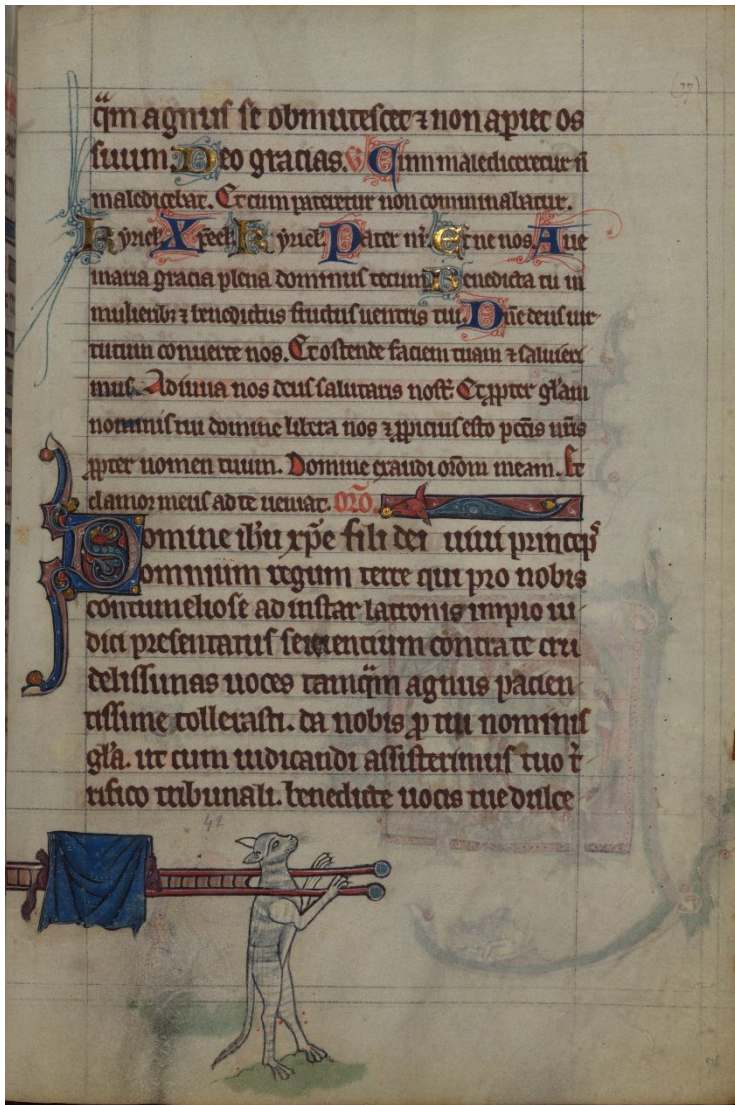 (37)
q̃m agnus se obmutescet ⁊ non apiet os
suum. Deo gracias. V Cum malediceretur ñ
maledicebat. Et cum pateretur non comminabatur.
Kyriel̃. Xp̃eel̃. Kyriel̃. Pater nr̃. Et ne nos. Aue
maria gracia plena dominus tecum. Benedicta tu in
mulierib⁊ ⁊ benedictus fructus uentris tui. Dñe deus uir-
tutum conuerte nos. Et ostende faciem tuam ⁊ salui eri
mus. Adiuua nos deus salutaris nost̃. Et ꝓpter gl̃am
nominis tui domine libera nos ⁊ ꝓpicius esto pc̃tis nr̃is
ꝓpter nomen tuum. Domine exaudi or̃om meam. Et
clamor meus ad te ueniat. or̃o.
Domine ih̃u xp̃e fili dei uiui princeps
omnium regum terre qui pro nobis
contumeliose ad instar latronis impio iu-
dici presentatus seruiencium contra te cru
delissimas uoces tamq̃m agnus pacien
tissime tollerasti. da nobis ꝓ tui nominis
gl̃a. ut cum iudicandi assisterimus tuo t̃
rifico tribunali. benedicte uocis tue dulce